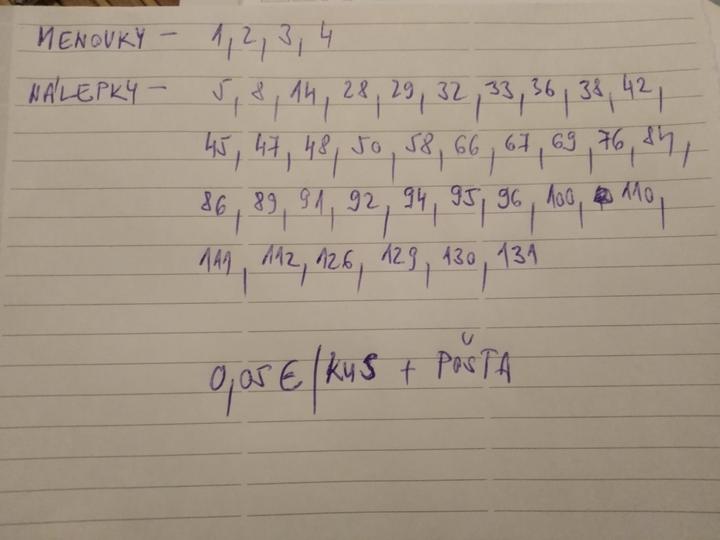 MENOVKY - 1, 2, 3, 4
NÁLEPKY - 5, 8, 14, 28, 29, 32, 33, 36, 38, 42,
45, 47, 48, 50, 58, 66, 67, 69, 76, 84,
86, 89, 91, 92, 94, 95, 96, 100, 110,
111, 112, 126, 129, 130, 131
0,05 € / KUS + POŠTA